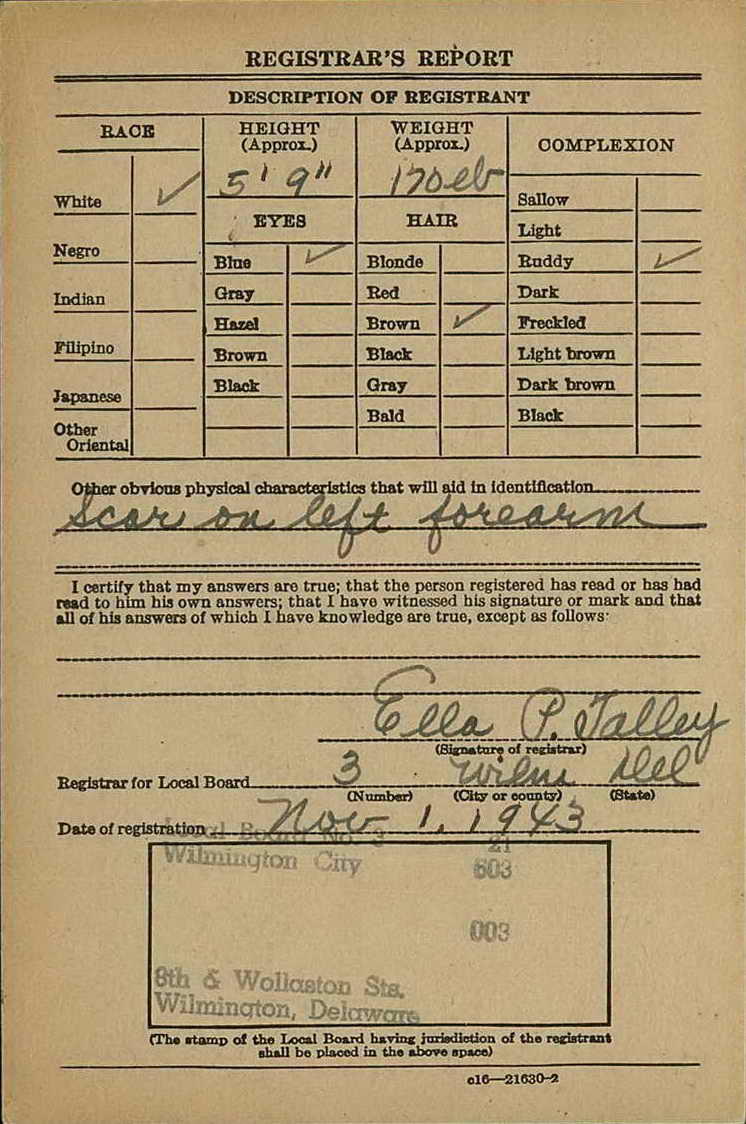 REGISTRAR'S REPORT
DESCRIPTION OF REGISTRANT
RACE
HEIGHT
(Approx.)
WEIGHT
(Approx.)
COMPLEXION
5' 9"
170 lb
White ✓
Negro
Indian
Filipino
Japanese
Other
Oriental
EYES
Blue ✓
Gray
Hazel
Brown
Black
HAIR
Blonde
Red
Brown ✓
Black
Gray
Bald
Sallow
Light
Ruddy ✓
Dark
Freckled
Light brown
Dark brown
Black
Other obvious physical characteristics that will aid in identification
Scar on left forearm
I certify that my answers are true; that the person registered has read or has had
read to him his own answers; that I have witnessed his signature or mark and that
all of his answers of which I have knowledge are true, except as follows:
Ella P. Talley
(Signature of registrar)
Registrar for Local Board 3 Wilm Del
(Number) (City or county) (State)
Date of registration Nov 1, 1943
Local Board No. 3 21
Wilmington City 603
003
8th & Wollaston Sts.
Wilmington, Delaware
(The stamp of the Local Board having jurisdiction of the registrant
shall be placed in the above space)
c16—21630-2